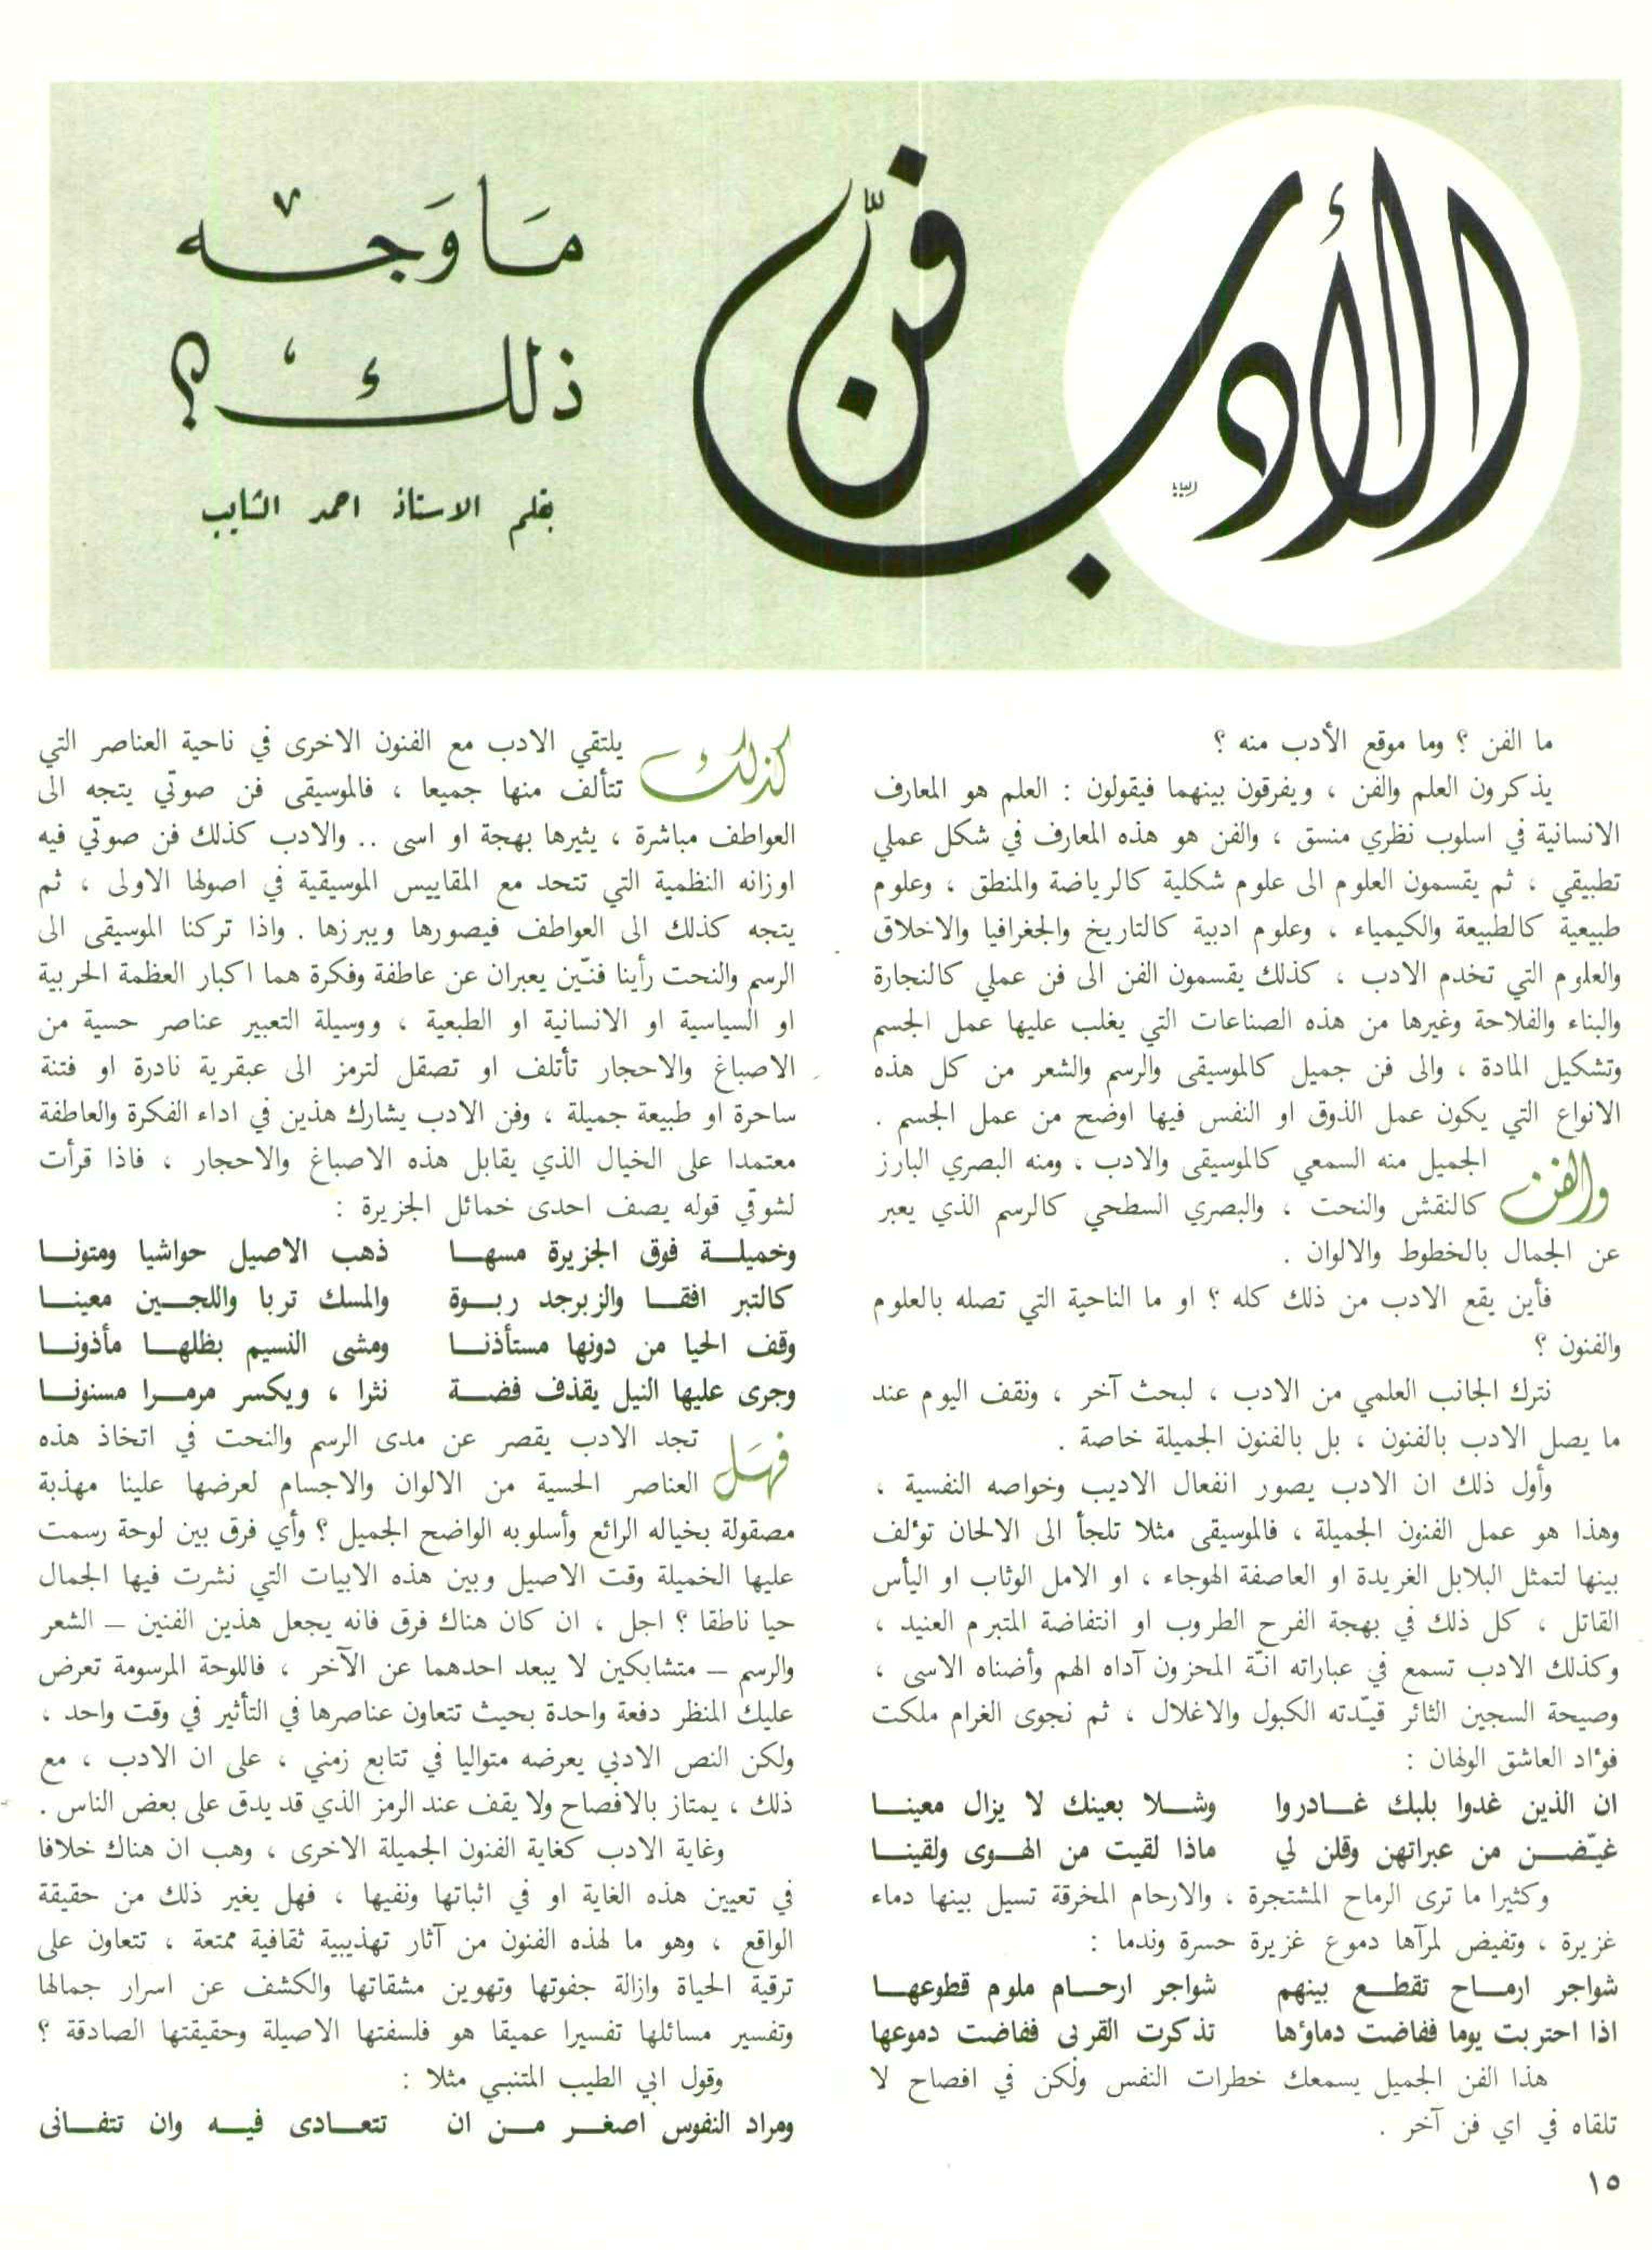 الأدب فنّ
مَا وَجْه
ذلك ؟
بقلم الاستاذ احمد الشايب
ما الفن ؟ وما موقع الأدب منه ؟
يذكرون العلم والفن ، ويفرقون بينهما فيقولون : العلم هو المعارف
الانسانية في اسلوب نظري منسق ، والفن هو هذه المعارف في شكل عملي
تطبيقي ، ثم يقسمون العلوم الى علوم شكلية كالرياضة والمنطق ، وعلوم
طبيعية كالطبيعة والكيمياء ، وعلوم ادبية كالتاريخ والجغرافيا والاخلاق
والعلوم التي تخدم الادب ، كذلك يقسمون الفن الى فن عملي كالنجارة
والبناء والفلاحة وغيرها من هذه الصناعات التي يغلب عليها عمل الجسم
وتشكيل المادة ، والى فن جميل كالموسيقى والرسم والشعر من كل هذه
الانواع التي يكون عمل الذوق او النفس فيها اوضح من عمل الجسم .
والفن الجميل منه السمعي كالموسيقى والادب ، ومنه البصري البارز
كالنقش والنحت ، والبصري السطحي كالرسم الذي يعبر
عن الجمال بالخطوط والالوان .
فأين يقع الادب من ذلك كله ؟ او ما الناحية التي تصله بالعلوم
والفنون ؟
نترك الجانب العلمي من الادب ، لبحث آخر ، ونقف اليوم عند
ما يصل الادب بالفنون ، بل بالفنون الجميلة خاصة .
وأول ذلك ان الادب يصور انفعال الاديب وخواصه النفسية ،
وهذا هو عمل الفنون الجميلة ، فالموسيقى مثلا تلجأ الى الالحان تؤلف
بينها لتمثل البلابل الغريدة او العاصفة الهوجاء ، او الامل الوثاب او اليأس
القاتل ، كل ذلك في بهجة الفرح الطروب او انتفاضة المتبرم العنيد ،
وكذلك الادب تسمع في عباراته انّة المحزون آداه الهم وأضناه الاسى ،
وصيحة السجين الثائر قيّدته الكبول والاغلال ، ثم نجوى الغرام ملكت
فؤاد العاشق الولهان :
ان الذين غدوا بلبك غـــادروا وشـــلا بعينك لا يزال معينـــا
غيّضـــن من عبراتهن وقلن لي ماذا لقيت من الهـــوى ولقينـــا
وكثيرا ما ترى الرماح المشتجرة ، والارحام المخرقة تسيل بينها دماء
غزيرة ، وتفيض لمرآها دموع غزيرة حسرة وندما :
شواجر ارمـــاح تقطـــع بينهم شواجر ارحـــام ملوم قطوعهـــا
اذا احتربت يوما ففاضت دماؤها تذكرت القربى ففاضت دموعها
هذا الفن الجميل يسمعك خطرات النفس ولكن في افصاح لا
تلقاه في اي فن آخر .
كذلك يلتقي الادب مع الفنون الاخرى في ناحية العناصر التي
تتألف منها جميعا ، فالموسيقى فن صوتي يتجه الى
العواطف مباشرة ، يثيرها بهجة او اسى .. والادب كذلك فن صوتي فيه
اوزانه النظمية التي تتحد مع المقاييس الموسيقية في اصولها الاولى ، ثم
يتجه كذلك الى العواطف فيصورها ويبرزها . واذا تركنا الموسيقى الى
الرسم والنحت رأينا فنّين يعبران عن عاطفة وفكرة هما اكبار العظمة الحربية
او السياسية او الانسانية او الطبعية ، ووسيلة التعبير عناصر حسية من
الاصباغ والاحجار تأتلف او تصقل لترمز الى عبقرية نادرة او فتنة
ساحرة او طبيعة جميلة ، وفن الادب يشارك هذين في اداء الفكرة والعاطفة
معتمدا على الخيال الذي يقابل هذه الاصباغ والاحجار ، فاذا قرأت
لشوقي قوله يصف احدى خمائل الجزيرة :
وخميلـــة فوق الجزيرة مسهـــا ذهب الاصيل حواشيا ومتونـــا
كالتبر افقـــا والزبرجد ربـــوة والمسك تربا واللجـــين معينـــا
وقف الحيا من دونها مستأذنـــا ومشى النسيم بظلهـــا مأذونـــا
وجرى عليها النيل يقذف فضـــة نثرا ، ويكسر مرمـــرا مسنونـــا
فهَل تجد الادب يقصر عن مدى الرسم والنحت في اتخاذ هذه
العناصر الحسية من الالوان والاجسام لعرضها علينا مهذبة
مصقولة بخياله الرائع وأسلوبه الواضح الجميل ؟ وأي فرق بين لوحة رسمت
عليها الخميلة وقت الاصيل وبين هذه الابيات التي نشرت فيها الجمال
حيا ناطقا ؟ اجل ، ان كان هناك فرق فانه يجعل هذين الفنين – الشعر
والرسم – متشابكين لا يبعد احدهما عن الآخر ، فاللوحة المرسومة تعرض
عليك المنظر دفعة واحدة بحيث تتعاون عناصرها في التأثير في وقت واحد ،
ولكن النص الادبي يعرضه متواليا في تتابع زمني ، على ان الادب ، مع
ذلك ، يمتاز بالافصاح ولا يقف عند الرمز الذي قد يدق على بعض الناس .
وغاية الادب كغاية الفنون الجميلة الاخرى ، وهب ان هناك خلافا
في تعيين هذه الغاية او في اثباتها ونفيها ، فهل يغير ذلك من حقيقة
الواقع ، وهو ما لهذه الفنون من آثار تهذيبية ثقافية ممتعة ، تتعاون على
ترقية الحياة وازالة جفوتها وتهوين مشقاتها والكشف عن اسرار جمالها
وتفسير مسائلها تفسيرا عميقا هو فلسفتها الاصيلة وحقيقتها الصادقة ؟
وقول ابي الطيب المتنبي مثلا :
ومراد النفوس اصغـــر مـــن ان تتعـــادى فيـــه وان تتفـــانى
١٥